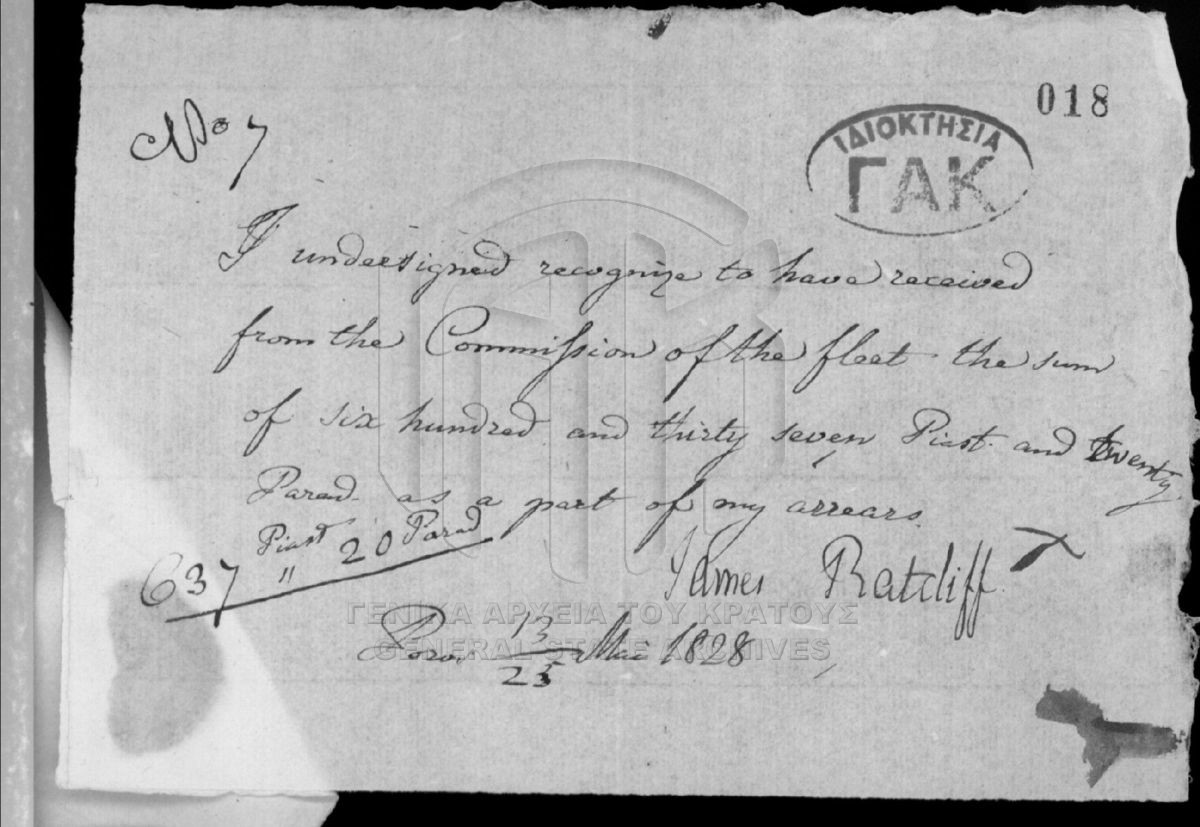 018
No 7
ΙΔΙΟΚΤΗΣΙΑ
ΓΑΚ
I undersigned recognize to have received
from the Commission of the fleet the sum
of six hundred and thirty seven Piast. and twenty
Parad. as a part of my arrears.
Piast Parad
637 " 20
James Ratcliff
ΓΕΝΙΚΑ ΑΡΧΕΙΑ ΤΟΥ ΚΡΑΤΟΥΣ
GENERAL STATE ARCHIVES
Poros 13/25 Mai 1828